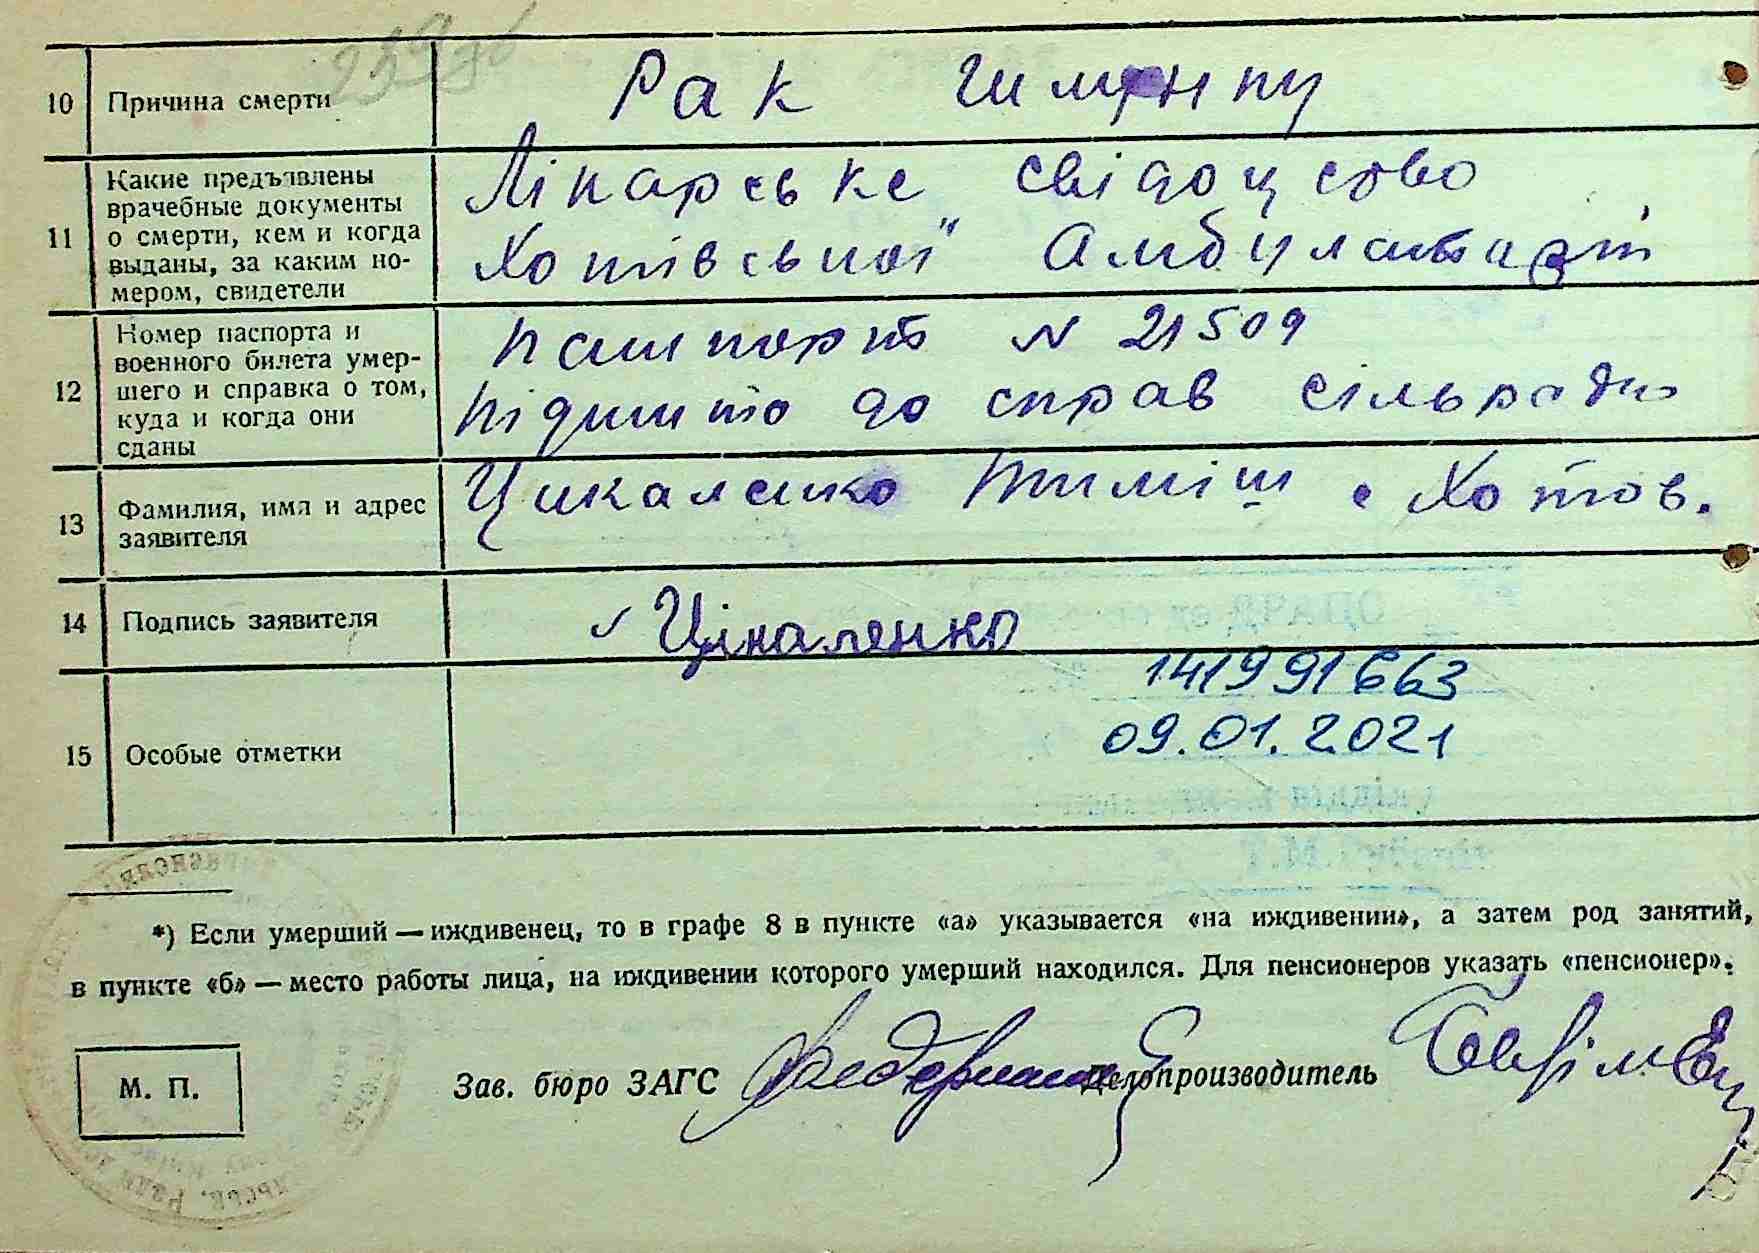 10 Причина смерти Рак
11 Какие предъявлены
врачебные документы
о смерти, кем и когда
выданы, за каким но-
мером, свидетели
Лікарське свідоцтво
Хотівської Амбулаторії
12 Номер паспорта и
военного билета умер-
шего и справка о том,
куда и когда они
сданы
пашпорт № 21509
підшито до справ сільради
13 Фамилия, имя и адрес
заявителя
Цикаленко Тиміш с Хотов.
14 Подпись заявителя Ціkаленко
15 Особые отметки
141991663
09.01.2021
*) Если умерший — иждивенец, то в графе 8 в пункте «а» указывается «на иждивении», а затем род занятий,
в пункте «б» — место работы лица, на иждивении которого умерший находился. Для пенсионеров указать «пенсионер».
М. П.
Зав. бюро ЗАГС Делопроизводитель